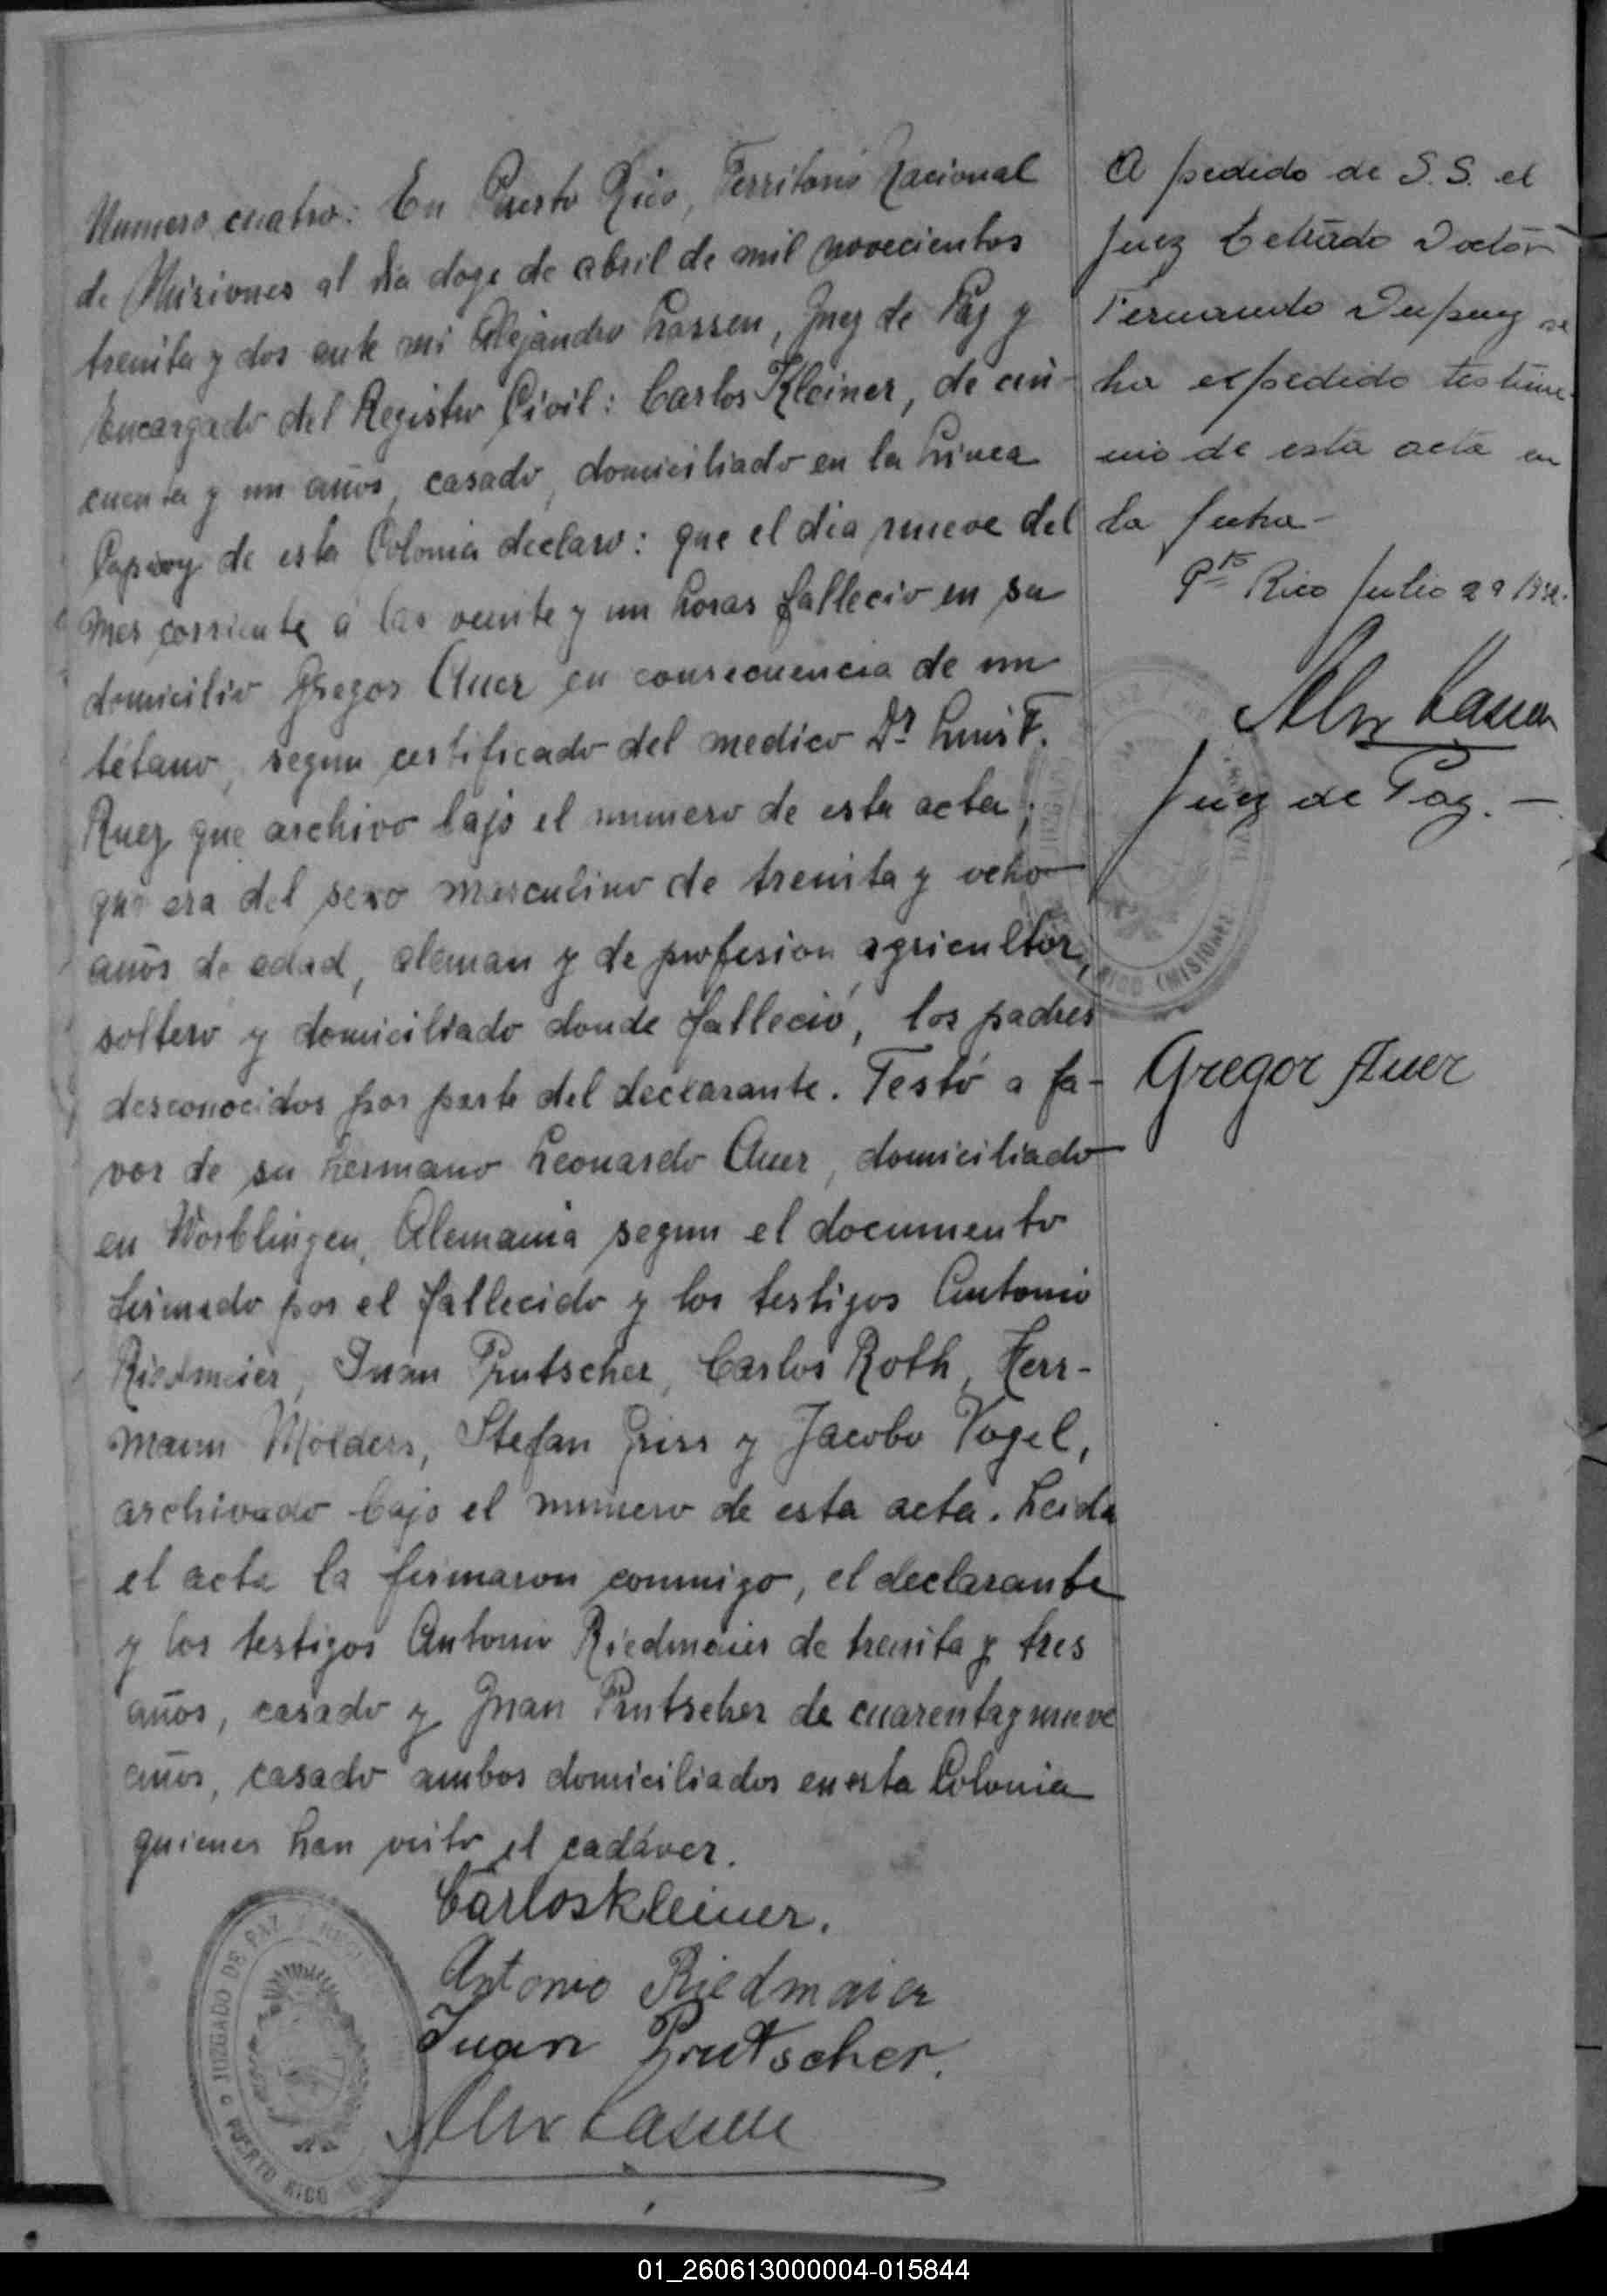 Numero cuatro: En Puerto Rico, Territorio Nacional
de Misiones al dia doze de abril de mil novecientos
treinta y dos ante mi Alejandro Lassen, Juez de Paz y
Encargado del Registro Civil: Carlos Kleiner, de cin-
cuenta y un años, casado, domiciliado en la Linea
de esta Colonia declaro: que el dia nueve del
mes corriente á las veinte y un horas fallecio en su
domicilio Gregor Auer en consecuencia de un
tétano, segun certificado del medico Dr. Luis F.
Ruez que archivo bajo el numero de esta acta;
que era del sexo masculino de treinta y ocho
años de edad, aleman y de profesion agricultor,
soltero y domiciliado donde falleció, los padres
desconocidos por parte del declarante. Testó a fa-
vor de su hermano Leonardo Auer, domiciliado
en Worblingen, Alemania segun el documento
firmado por el fallecido y los testigos Antonio
Riedmaier, Juan Prutscher, Carlos Roth, Herr-
mann Mölders, Stefan Griss y Jacobo Vogel,
archivado bajo el numero de esta acta. Leida
el acta la firmaron conmigo, el declarante
y los testigos Antonio Riedmaier de treinta y tres
años, casado y Juan Prutscher de cuarenta y nueve
años, casado ambos domiciliados en esta Colonia
quienes han visto el cadáver.
Carlos Kleiner.
Antonio Riedmaier
Juan Prutscher.
Alex Lassen
JUZGADO DE PAZ
PUERTO RICO
A pedido de S.S. el
Juez Letrado Doctor
Fernando Dupuy se
ha expedido testimo-
nio de esta acta en
la fecha-
Pto Rico Julio 29
Alex Lassen
Juez de Paz.-
RICO (MISIONES)
Gregor Auer
01_260613000004-015844